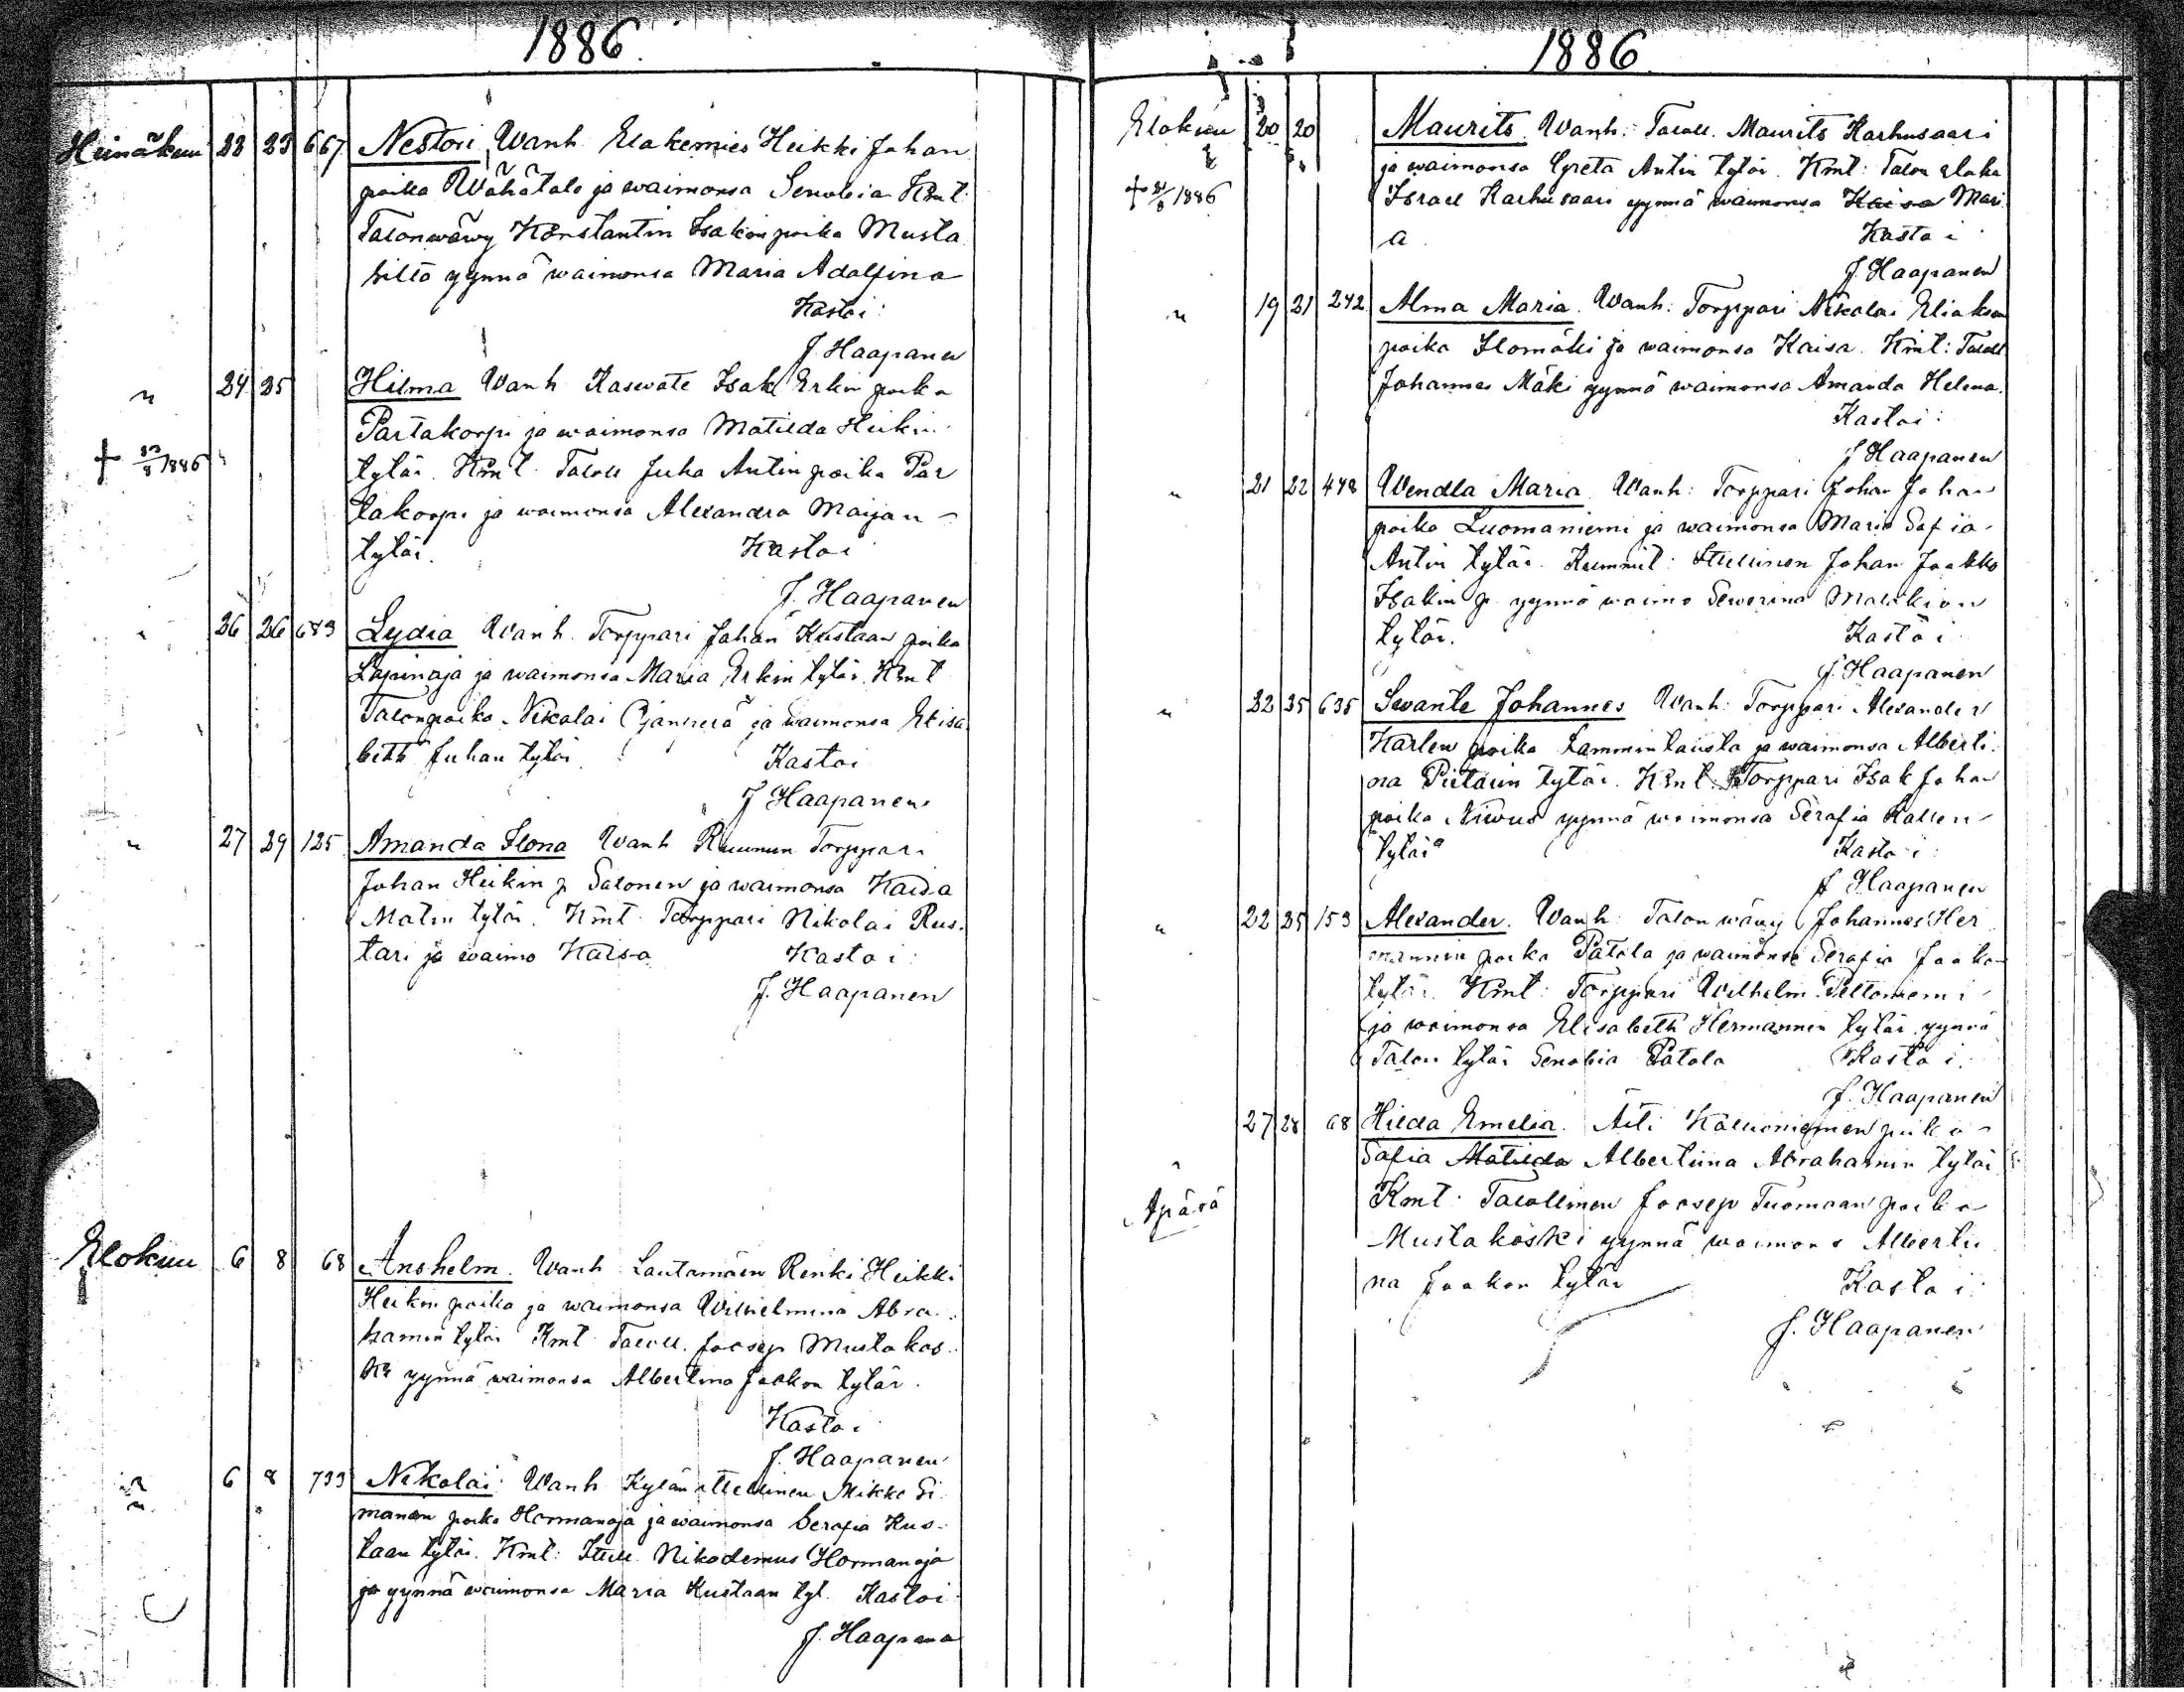 1886.
Heinäkuu 23 23 667 Nestori, Wanh Elakemies Heikki Johan
poika Wähätalo ja waimonsa Senobia Kmt:
Talonwäwy Konstantin Isakin poika Musta
hilto yynnä waimonsa Maria Adolfina
Kastoi:
J. Haapanen
" 24 25 Hilma Wanh Isak Erkin poika
Partakorpi ja waimonsa Matilda Heikin
+ 1886 tytär. Kmt. Taloll Juha Antin poika Par
takorpi ja waimonsa Alexandra Maijan
tytär. Kastoi
J. Haapanen
26 26 689 Lydia Wanh. Torppari Johan Kustaan poika
Lapinoja ja waimonsa Maria Erkin tytär. Kmt
Talonpoika Nikolai ja waimonsa Elisa
beth Juhan tytär Kastoi
J Haapanen
" 27 29 125 Amanda Ilona Wanh Ruunun Torppari
Johan Heikin p Salonen ja waimonsa Kaisa
Matin tytär. Kmt Torppari Nikolai Rus.
tari ja waimo Kaisa Kastoi:
J. Haapanen
Elokuu 6 8 68 Anshelm. Wanh Lautamäen Renki Heikki
Heikin poika ja waimonsa Wilhelmina Abra.
hamin tytär Kmt Taloll. Joosep Mustakos.
ki yynnä waimonsa Albertina Jaakon tytär.
Kastoi
J. Haapanen
" 6 8 733 Nikolai Wanh Kylän ittellinen Mikki Si
manan poika Hormanoja ja waimonsa Serafia Kus.
taan tytär. Kmt: Ittell. Nikodemus Hormanoja
ja yynnä waimonsa Maria Kustaan tyt. Kastoi
J. Haapanen
1886
Elokuu 20 20 Maurits. Wanh: Taloll. Maurits Karhusaari
ja waimonsa Greta Antin tytär. Kmt: Talon elaka
+ 1886 Israel Karhusaari yynnä waimonsa Kaisa Mari
a. Kastoi
J. Haapanen
" 19 21 242 Alma Maria. Wanh: Torppari Nikolai Eliaksen
poika Ilomäki ja waimonsa Kaisa. Kmt: Taloll
Johannes Mäki yynnä waimonsa Amanda Helena.
Kastoi:
J Haapanen
" 21 22 448 Wendla Maria Wanh: Torppari Johan Johan
poika Luomaniemi ja waimonsa Maria Sofia
Antin tytär. Kummit: Ittellinen Johan Jaakko
Isakin p. yynnä waimo Sewerina Malakian
tytär. Kastoi
J. Haapanen
" 22 25 635 Sevante Johannes Wanh: Torppari Alexander
Karlen poika Lammintausta ja waimonsa Alberti.
na Pietarin tytär. Kmt. Torppari Isak Johan
poika Niwus yynnä waimonsa Serafia Kallen
tytär Kastoi:
J Haapanen
" 22 25 153 Alexander. Wanh: Talon wäwy Johannes Her
mannin poika Patala ja waimonsa Serafia Jaakon
tytär. Kmt: Torppari Wilhelm Peltoniemi
ja waimonsa Elisabeth Hermannin tytär yynnä
Talon tytär Senobia Patala Kastoi:
J. Haapanen
27 28 68 Hilda Emelia. Äiti Kallioniemen piika
" Sofia Matilda Albertiina Abrahamin tytär
Äpärä Kmt: Talollinen Joosep Tuomaan poika
Mustakoski yynnä waimons Albertii
na Jaakon tytär Kastoi
J. Haapanen